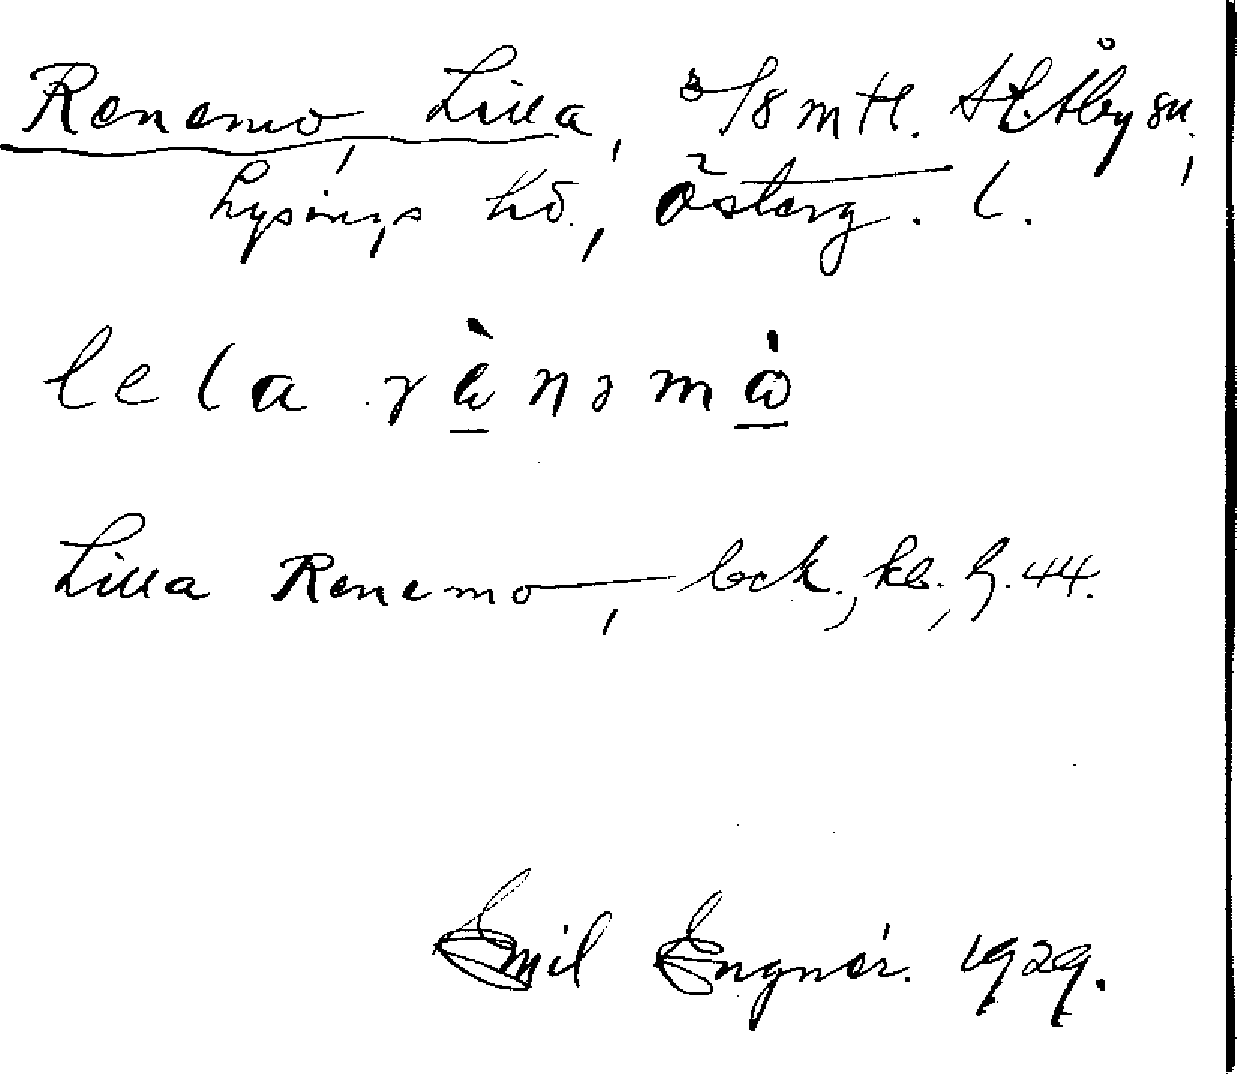 Renemo, Lilla, 3/8 mtl. St. Åby sn,
Lysings hd., Österg. l.
lela rὰnəmὼ
Lilla Renemo, beck., kb., h. 44.
Emil Engnér. 1929.